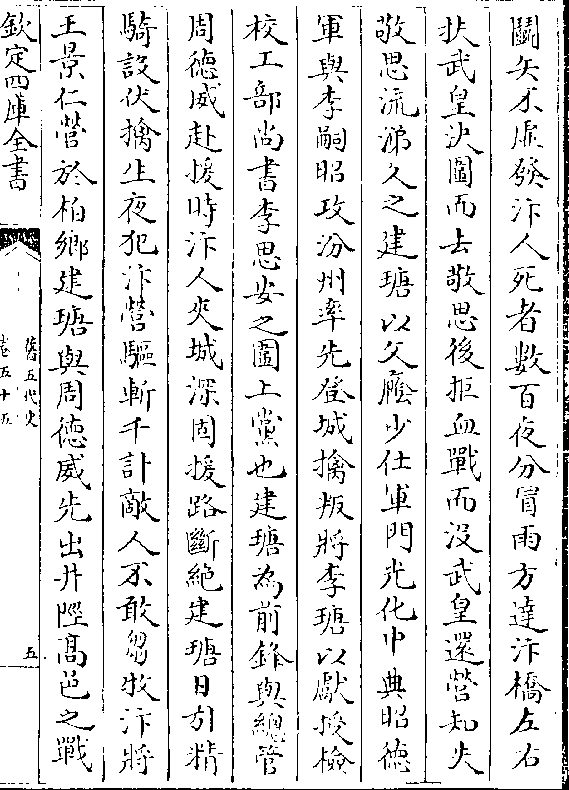 鬭矢不虛發汴人死者數百夜分冒雨方達汴橋左右
扶武皇決圍而去敬思後拒血戰而沒武皇還營知失
敬思流涕久之建瑭以父廕少仕軍門光化中典昭德
軍與李嗣昭攻汾州率先登城擒叛將李瑭以獻授檢
校工部尚書李思安之圍上黨也建瑭為前鋒與總管
周德威赴援時汴人夾城深固援路斷絶建瑭日引精
騎設伏擒生夜犯汴營驅斬千計敵人不敢芻牧汴將
王景仁營於柏鄉建瑭與周德威先出井陘高邑之戰
欽定四庫全書
舊五代史
卷五十五
五